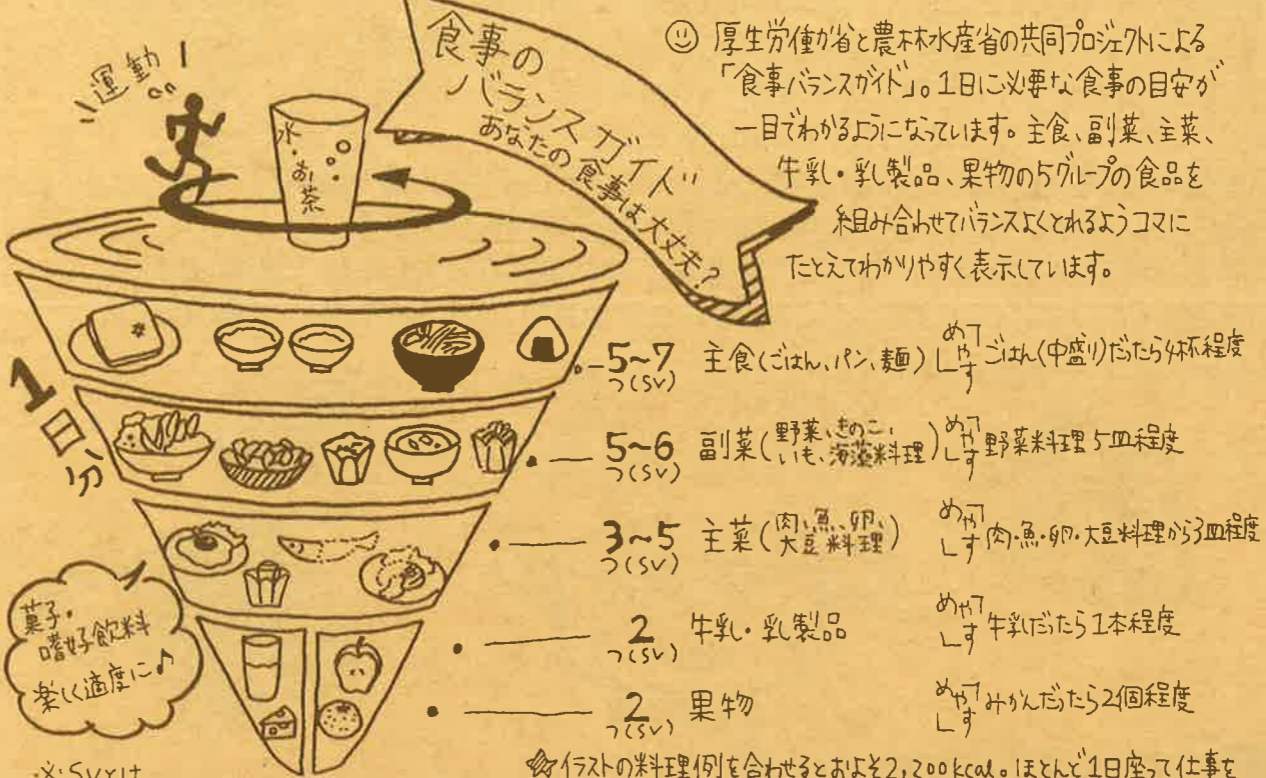 運動!
水・お茶
食事の
バランスガイド
あなたの食事は大丈夫?
厚生労働省と農林水産省の共同プロジェクトによる
「食事バランスガイド」。1日に必要な食事の目安が
一目でわかるようになっています。主食、副菜、主菜、
牛乳・乳製品、果物の5グループの食品を
組み合わせてバランスよくとれるようコマに
たとえてわかりやすく表示しています。
1日分
5~7 つ(SV) 主食(ごはん、パン、麺)「めやす」ごはん(中盛り)だったら4杯程度
5~6 つ(SV) 副菜(野菜、きのこ、いも、海藻料理)「めやす」野菜料理5皿程度
3~5 つ(SV) 主菜(肉、魚、卵、大豆料理)「めやす」肉・魚・卵・大豆料理から3皿程度
2 つ(SV) 牛乳・乳製品「めやす」牛乳だったら1本程度
2 つ(SV) 果物「めやす」みかんだったら2個程度
菓子・
嗜好飲料
楽しく適度に♪
※SVとは
イラストの料理例を合わせるとおよそ2,200kcal。ほとんど1日座って仕事を